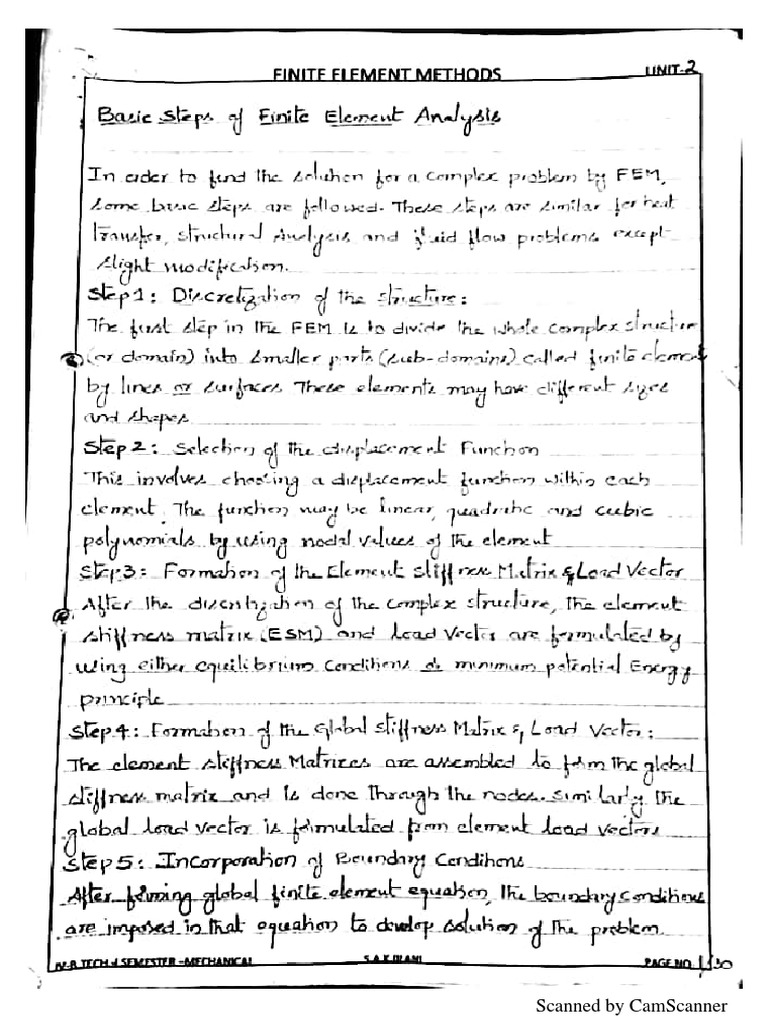 FINITE ELEMENT METHODS UNIT-2
Basic Steps of Finite Element Analysis
In order to find the solution for a complex problem by FEM,
some basic steps are followed. These steps are similar for heat
transfer, structural Analysis and fluid flow problems except
slight modification.
Step1: Discretization of the structure:
The first step in the FEM is to divide the whole complex structure
(or domain) into smaller parts (sub-domains) called finite element
by lines or surfaces These elements may have different sizes
and shapes
Step2: Selection of the displacement Function
This involves choosing a displacement function within each
element. The function may be linear, quadratic and cubic
polynomials by using nodal values of the element
Step3: Formation of the Element Stiffness Matrix & Load Vector
After the discretization of the complex structure, the element
stiffness matrix (ESM) and load vector are formulated by
using either equilibrium conditions or minimum potential Energy
principle
Step4: Formation of the Global Stiffness Matrix & Load Vector:
The element stiffness Matrices are assembled to form the global
stiffness matrix and is done through the nodes. similarly the
global load vector is formulated from element load vectors
Step5: Incorporation of Boundary Conditions
After forming global finite element equation, the boundary conditions
are imposed in that equation to develop solution of the problem.
IV-B.TECH SEMESTER -MECHANICAL PAGE NO 30
Scanned by CamScanner